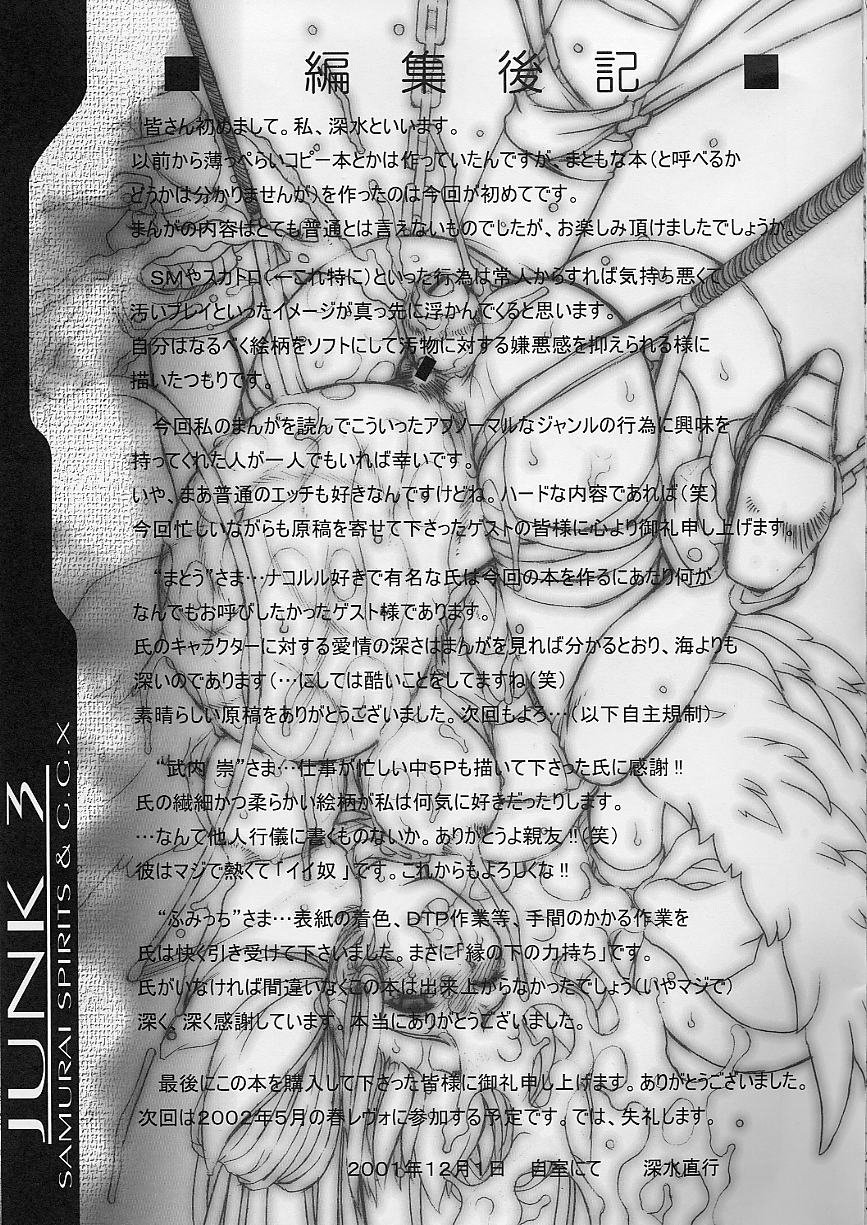 ■ 編集後記 ■
皆さん初めまして。私、深水といいます。
以前から薄っぺらいコピー本とかは作っていたんですが、まともな本(と呼べるか
どうかは分かりませんが)を作ったのは今回が初めてです。
まんがの内容はとても普通とは言えないものでしたが、お楽しみ頂けましたでしょうか。
SMやスカトロ(←これ特に)といった行為は常人からすれば気持ち悪くて
汚いプレイといったイメージが真っ先に浮かんでくると思います。
自分はなるべく絵柄をソフトにして汚物に対する嫌悪感を抑えられる様に
描いたつもりです。
今回私のまんがを読んでこういったアブノーマルなジャンルの行為に興味を
持ってくれた人が一人でもいれば幸いです。
いや、まあ普通のエッチも好きなんですけどね。ハードな内容であれば(笑)
今回忙しいながらも原稿を寄せて下さったゲストの皆様に心より御礼申し上げます。
“まとう”さま…ナコルル好きで有名な氏は今回の本を作るにあたり何が
なんでもお呼びしたかったゲスト様であります。
氏のキャラクターに対する愛情の深さはまんがを見れば分かるとおり、海よりも
深いのであります(…にしては酷いことをしてますね(笑)
素晴らしい原稿をありがとうございました。次回もよろ…(以下自主規制)
“武内 崇”さま…仕事が忙しい中5Pも描いて下さった氏に感謝!!
氏の繊細かつ柔らかい絵柄が私は何気に好きだったりします。
…なんて他人行儀に書くものないか。ありがとうよ親友!!(笑)
彼はマジで熱くて「イイ奴」です。これからもよろしくな!!
“ふみっち”さま…表紙の着色、DTP作業等、手間のかかる作業を
氏は快く引き受けて下さいました。まさに「縁の下の力持ち」です。
氏がいなければ間違いなくこの本は出来上がらなかったでしょう(いやマジで)
深く、深く感謝しています。本当にありがとうございました。
最後にこの本を購入して下さった皆様に御礼申し上げます。ありがとうございました。
次回は2002年5月の春レヴォに参加する予定です。では、失礼します。
2001年12月1日 自室にて 深水直行
JUNK 3
SAMURAI SPIRITS & G.G.X